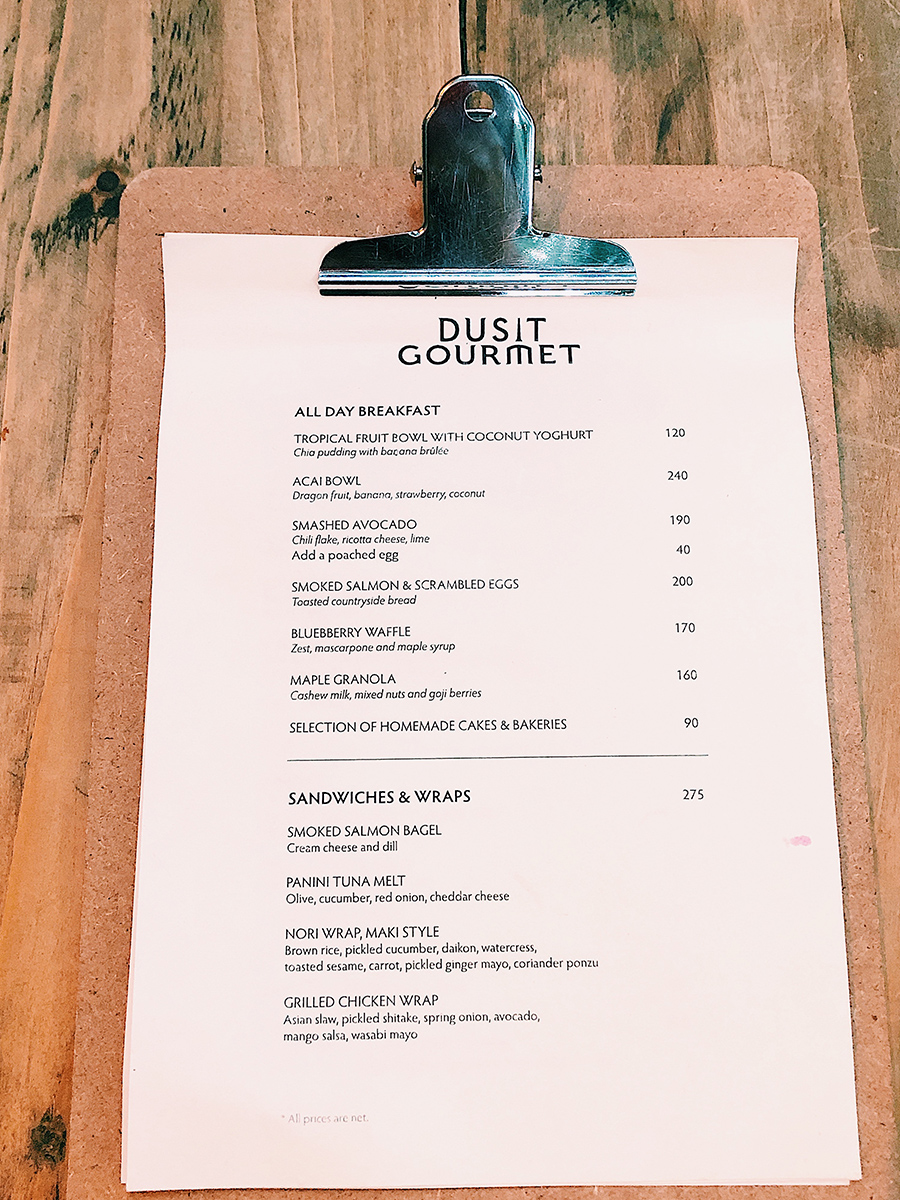 DUSIT
GOURMET
ALL DAY BREAKFAST
TROPICAL FRUIT BOWL WITH COCONUT YOGHURT 120
Chia pudding with bacana brûlée
ACAI BOWL 240
Dragon fruit, banana, strawberry, coconut
SMASHED AVOCADO 190
Chili flake, ricotta cheese, lime
Add a poached egg 40
SMOKED SALMON & SCRAMBLED EGGS 200
Toasted countryside bread
BLUEBBERRY WAFFLE 170
Zest, mascarpone and maple syrup
MAPLE GRANOLA 160
Cashew milk, mixed nuts and goji berries
SELECTION OF HOMEMADE CAKES & BAKERIES 90
SANDWICHES & WRAPS 275
SMOKED SALMON BAGEL
Cream cheese and dill
PANINI TUNA MELT
Olive, cucumber, red onion, cheddar cheese
NORI WRAP, MAKI STYLE
Brown rice, pickled cucumber, daikon, watercress,
toasted sesame, carrot, pickled ginger mayo, coriander ponzu
GRILLED CHICKEN WRAP
Asian slaw, pickled shitake, spring onion, avocado,
mango salsa, wasabi mayo
* All prices are net.